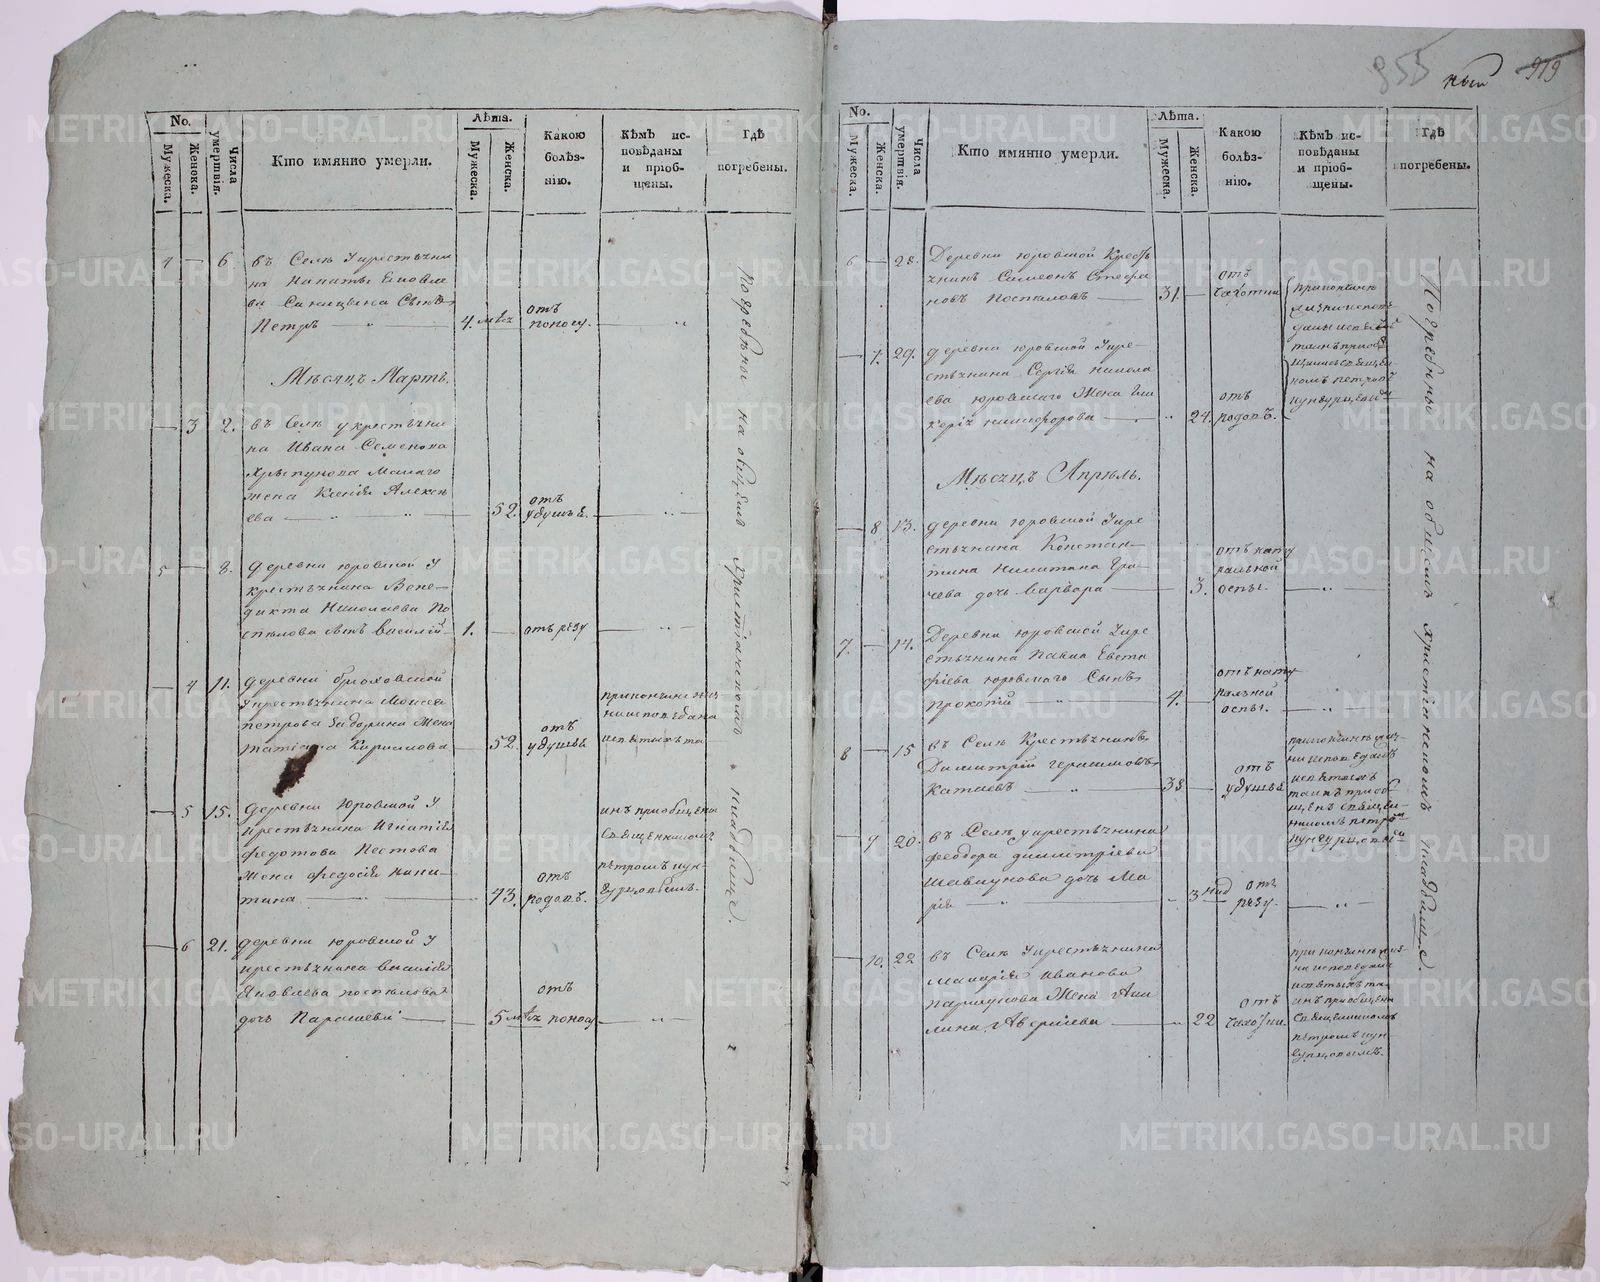 No.
Мужеска.
Женска.
Числа умертвія.
Кто имянно умерли.
Лѣта.
Мужеска.
Женска.
Какою болѣзнію.
Кѣмъ исповѣданы и пріобщены.
Гдѣ погребены.
4 — 6
въ Селѣ Укрестьяни
на Игнатья
Синицына Сынъ
Петръ — 4. мѣс. отъ поносу.
Мѣсяцъ Мартъ.
— 3 2.
въ Селѣ у крестьяни
на Ивана Семенова
Хрыпунова Малаго
жена Ксенія Алексѣ
ева — 52. отъ удушья.
5 — 8.
деревни юровской У
крестьянина Вене-
дикта Николаева По
спѣлова сынъ василій 1. — отъ резу
— 4 11.
деревни
Укрестьянина Моисея
петрова Задорина Жена
татіана Кирилова — 52. отъ удушья
при кончинѣ жиз
ни исповѣдана
и святыхъ та
— 5 15.
деревни Юровской У
крестьянина Игнатія
федотова Пестова
жена федосія ники-
тина — 43. отъ родовъ.
инъ пріобщена
Священникомъ
петромъ кун-
гурцовымъ.
— 6 21.
деревни юровской У
крестьянина василія
Яковлева поспѣлова
дочь Параскевія — 5 мѣс. отъ поносу
погребены на общемъ христіанскомъ кладбище.
355
919
No.
Мужеска.
Женска.
Числа умертвія.
Кто имянно умерли.
Лѣта.
Мужеска.
Женска.
Какою болѣзнію.
Кѣмъ исповѣданы и пріобщены.
Гдѣ погребены.
6 — 28.
Деревни юровской Кресть
янинъ Симеонъ Стефа
новъ Поспѣловъ — 31. — отъ чахотки
при кончинѣ
жизни исповѣ
даны и святыхъ
таинъ пріоб
щены священ
комъ петромъ
кунгурцовымъ
— 7. 29.
деревни юровской Укре-
стьянина Сергія никола
ева юровскаго Жена Гли
керія никифорова — 24. отъ родовъ.
Мѣсяцъ Апрѣль.
— 8 13.
деревни юровской Укре
стьянина Констан-
тина Никитина Гра-
чева дочь варвара — 3. отъ нату
ральной
оспы.
7. — 14.
Деревни юровской Укре
стьянина павла Евста
фіева юровскаго Сынъ
прокопій — 4. — отъ нату
ральной
оспы.
8 — 15
въ Селѣ Крестьянинъ
Димитрій герасимовъ
Катаевъ — 38 — отъ удушья
при кончинѣ жиз-
ни исповѣданъ
и святыхъ
таинъ пріоб
щенъ священ-
никомъ петромъ
кунгурцовы
— 9 20.
въ Селѣ у крестьянина
феодора димитріева
Шавкунова дочь Ма
рія — 3 нед отъ резу.
— 10. 22
въ Селѣ Укрестьянина
макарія иванова
Жена Аки
лина Аверкіева — 22 отъ чахотки.
при кончинѣ жиз
ни исповѣдана
и святыхъ та
инъ пріобщена
Священникомъ
петромъ кун
гурцовымъ.
Погребены на общемъ христіанскомъ кладбище.